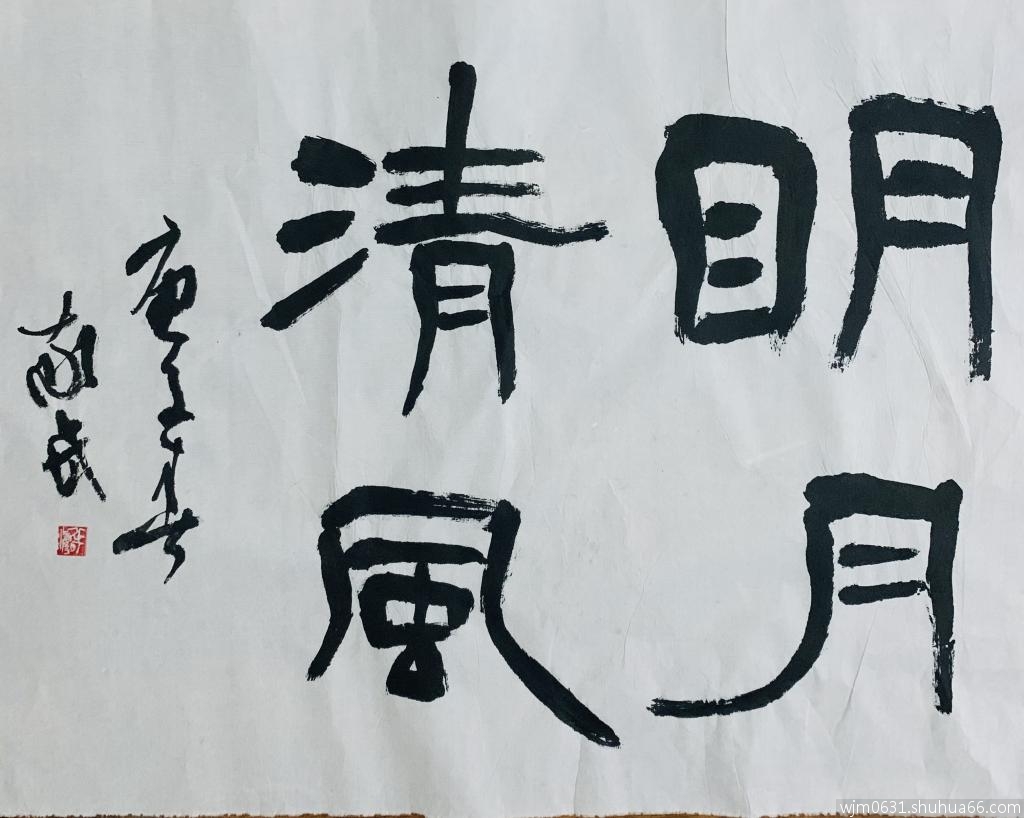 明月
清風
庚子春
wjm0631.shuhua66.com